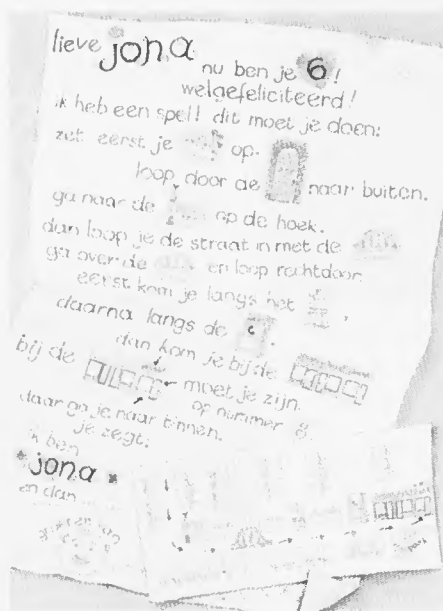 lieve jona
nu ben je 6!
welgefeliciteerd!
ik heb een spel! dit moet je doen:
zet eerst je op.
loop door de naar buiten.
ga naar de op de hoek.
dan loop je de straat in met de
ga over de en loop rechtdoor.
eerst kom je langs het ,
daarna langs de .
dan kom je bij de
bij de moet je zijn.
op nummer 8
daar ga je naar binnen.
je zegt:
ik ben
jona
en dan